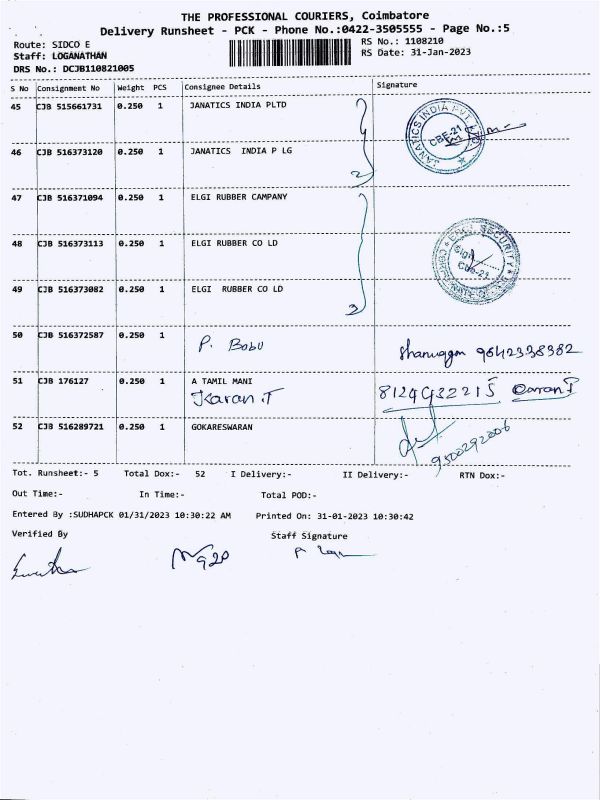 THE PROFESSIONAL COURIERS, Coimbatore
Delivery Runsheet - PCK - Phone No.:0422-3505555 - Page No.:5
Route: SIDCO E
Staff: LOGANATHAN
DRS No.: DCJB110821005
RS No.: 1108210
RS Date: 31-Jan-2023
S No Consignment No Weight PCS Consignee Details Signature
45 CJB 515661731 0.250 1 JANATICS INDIA PLTD
JANATICS INDIA PVT LTD
CBE-21
46 CJB 516373120 0.250 1 JANATICS INDIA P LG
2
47 CJB 516371094 0.250 1 ELGI RUBBER CAMPANY
48 CJB 516373113 0.250 1 ELGI RUBBER CO LD
SECURITY
CBE-21
49 CJB 516373082 0.250 1 ELGI RUBBER CO LD
3
50 CJB 516372587 0.250 1 P. Babu 9842338382
51 CJB 176127 0.250 1 A TAMIL MANI
Karan.T
52 CJB 516289721 0.250 1 GOKARESWARAN
9500292006
Tot. Runsheet:- 5 Total Dox:- 52 I Delivery:- II Delivery:- RTN Dox:-
Out Time:- In Time:- Total POD:-
Entered By :SUDHAPCK 01/31/2023 10:30:22 AM Printed On: 31-01-2023 10:30:42
Verified By Staff Signature